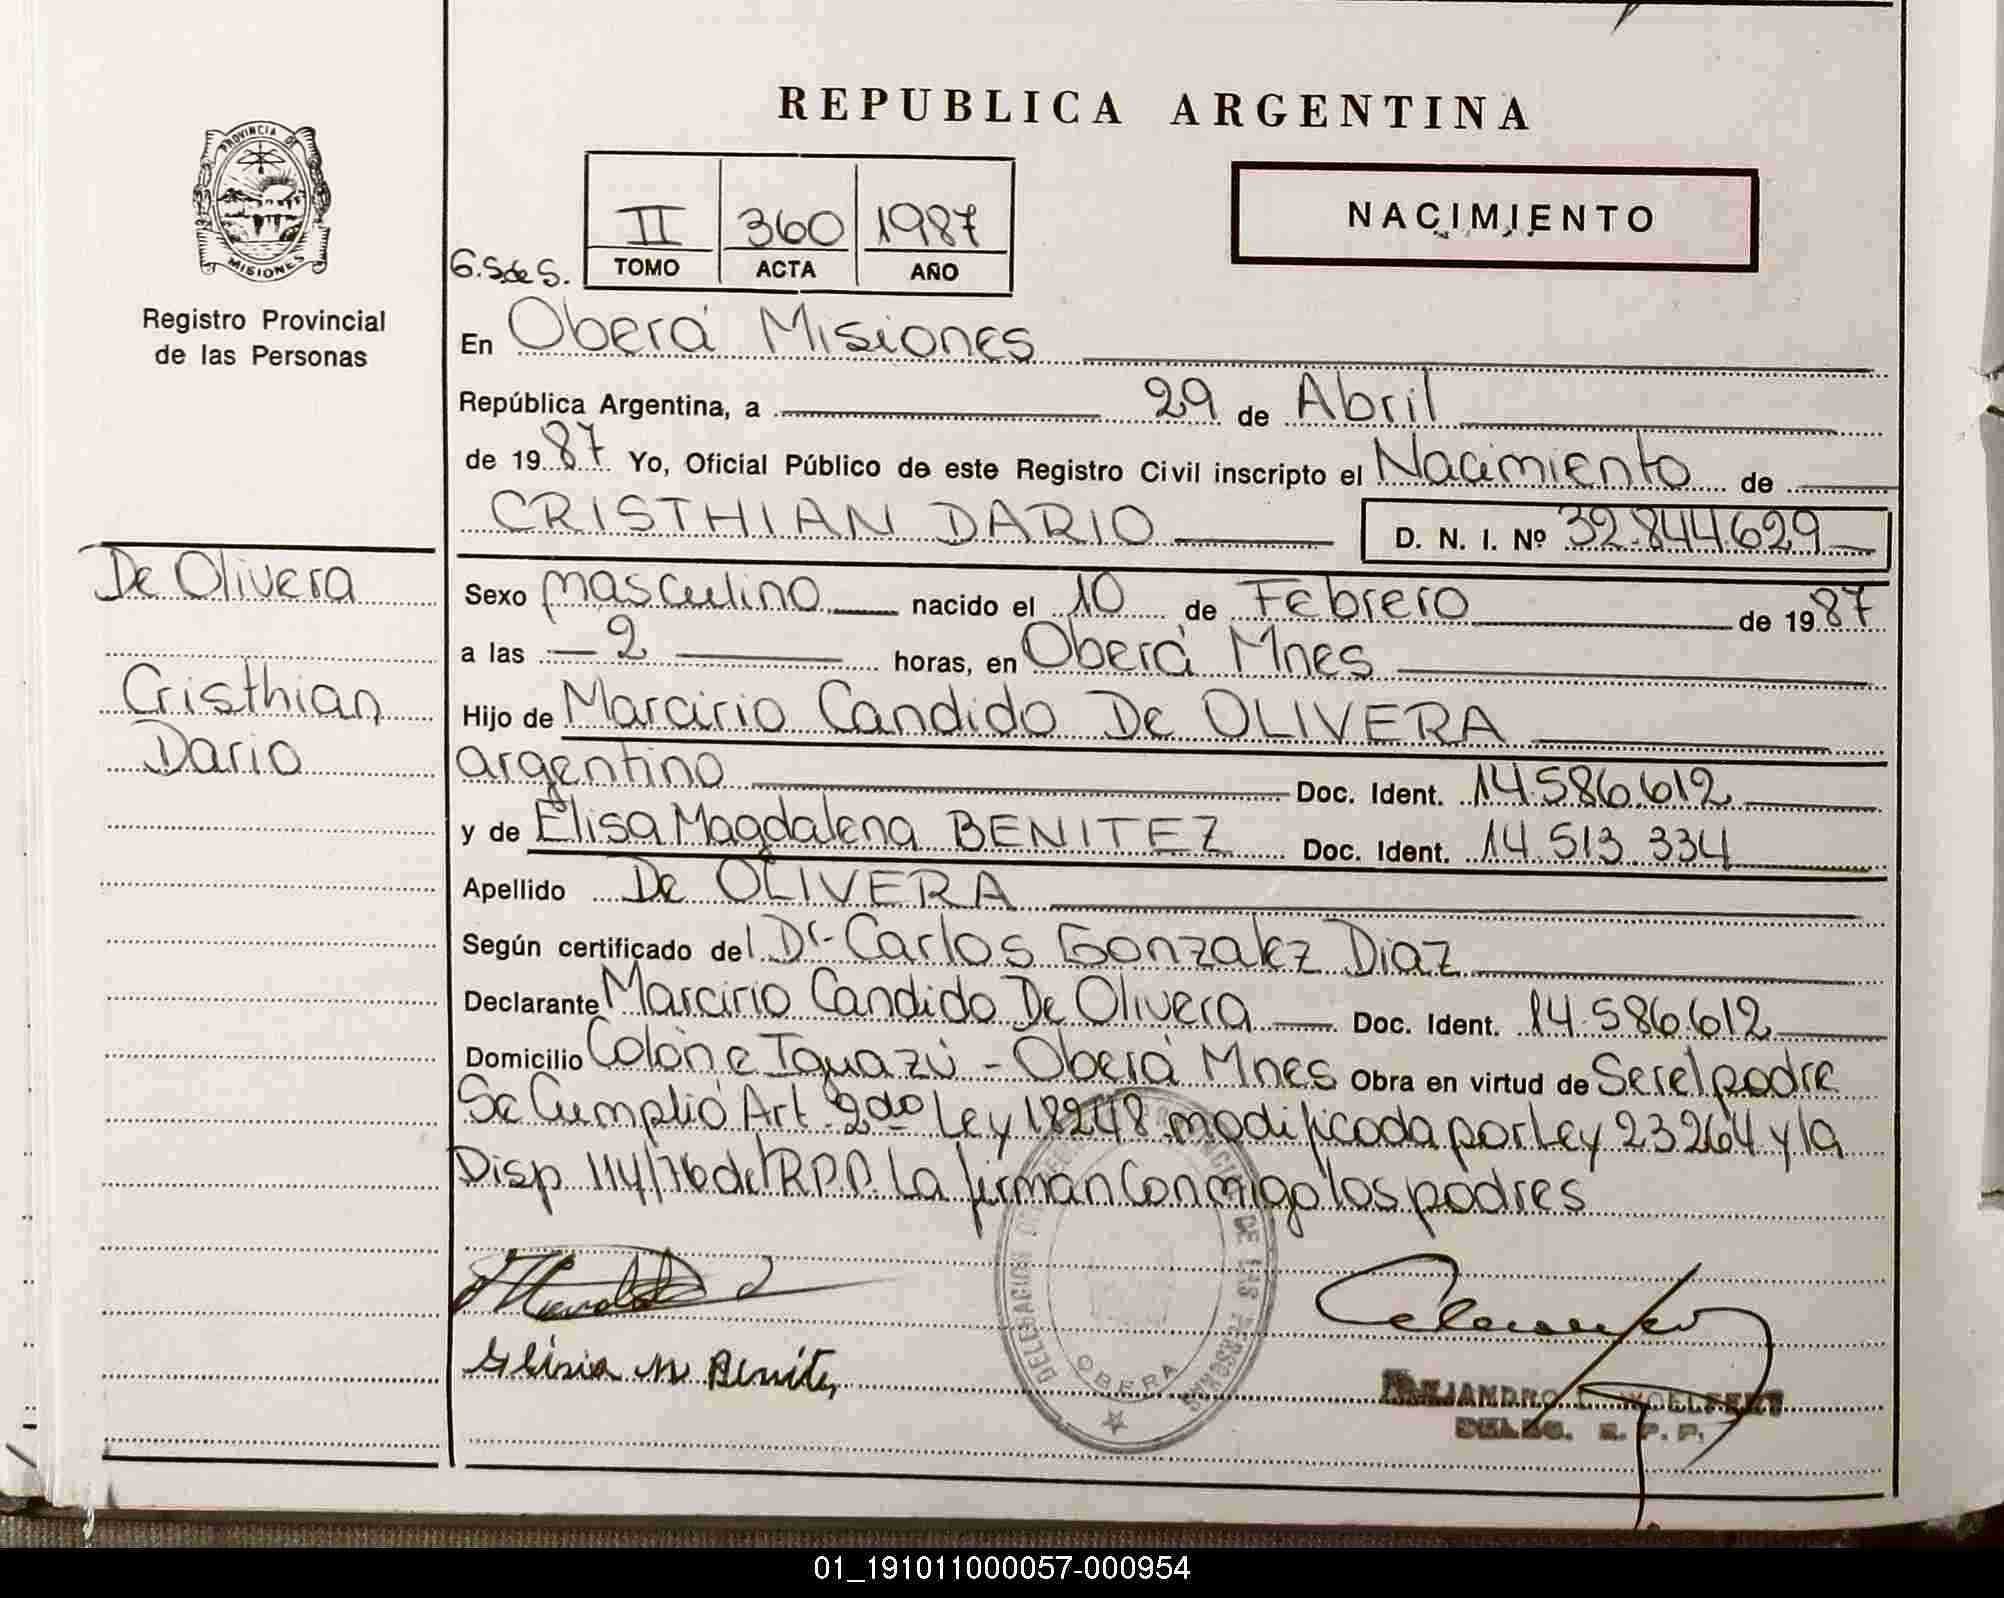 REPUBLICA ARGENTINA
PROVINCIA DE
MISIONES
Registro Provincial
de las Personas
II 360 1987
TOMO ACTA AÑO
NACIMIENTO
G.S de S.
En Oberá Misiones
República Argentina, a 29 de Abril
de 1987 Yo, Oficial Público de este Registro Civil inscripto el Nacimiento de
CRISTHIAN DARIO D. N. I. Nº 32.844.629
De Olivera
Cristhian
Dario
Sexo masculino nacido el 10 de Febrero de 1987
a las 2 horas, en Oberá Mnes
Hijo de Marcirio Candido De OLIVERA
argentino Doc. Ident. 14.586.612
y de Elisa Magdalena BENITEZ Doc. Ident. 14.513.334
Apellido De OLIVERA
Según certificado del Dr. Carlos Gonzalez Diaz
Declarante Marcirio Candido De Olivera Doc. Ident. 14.586.612
Domicilio Colón e Iguazú - Oberá Mnes Obra en virtud de Ser el padre
Se Cumplió Art. 2do Ley 18248 modificada por Ley 23264 y la
Disp 114/76 del R.P.P. La firman Conmigo los padres
DELEGACION DE LAS PERSONAS
OBERA
M Benitez
DELEG. R. P. P.
01_191011000057-000954